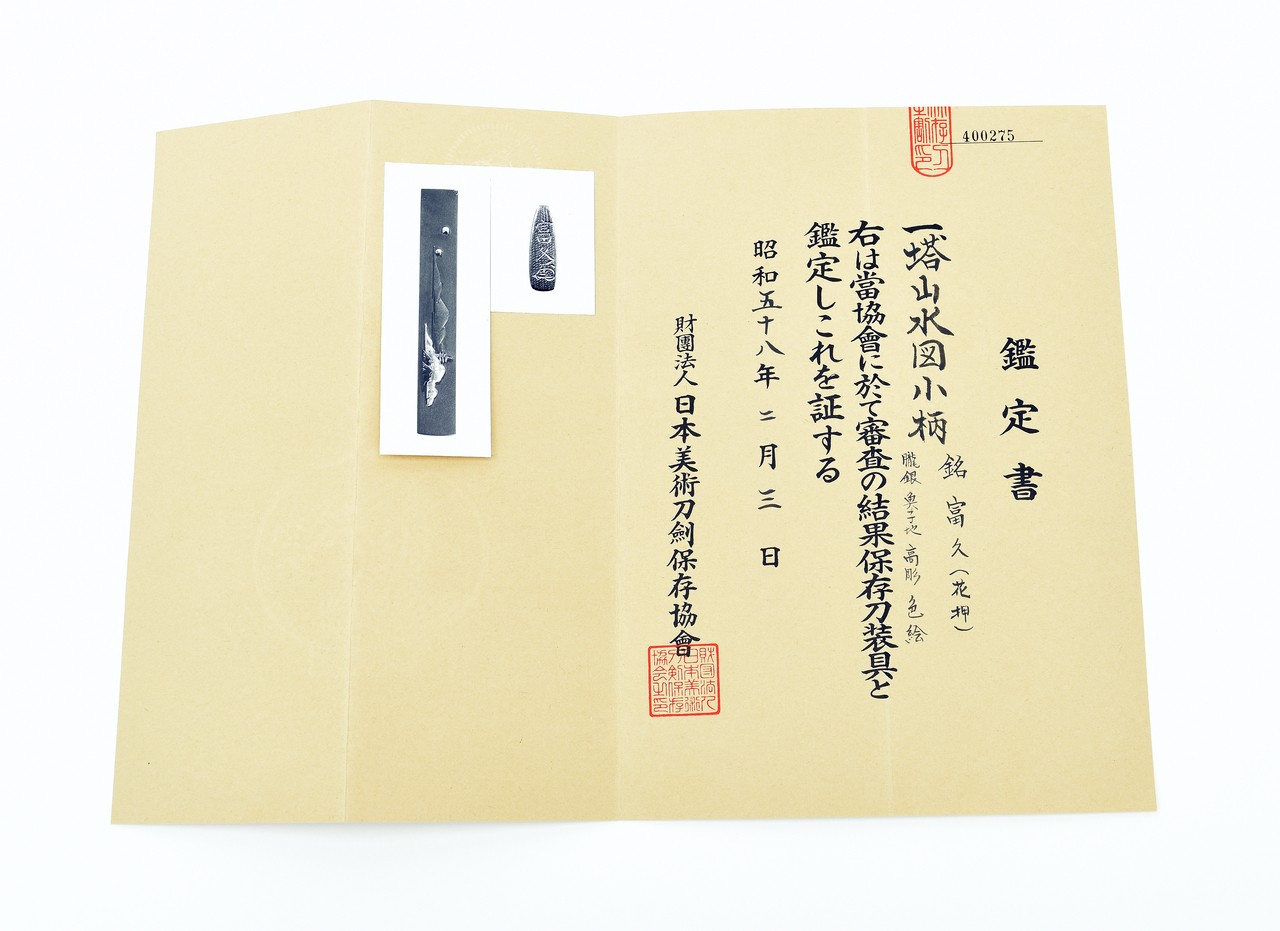 400275
鑑定書
一塔山水図小柄
銘 富久(花押)
朧銀 地 高彫 色絵
右は當協會に於て審査の結果保存刀装具と
鑑定しこれを証する
昭和五十八年二月三日
財團法人日本美術刀劍保存協會
財団法人
日本美術
刀剣保存
協会之印
富久